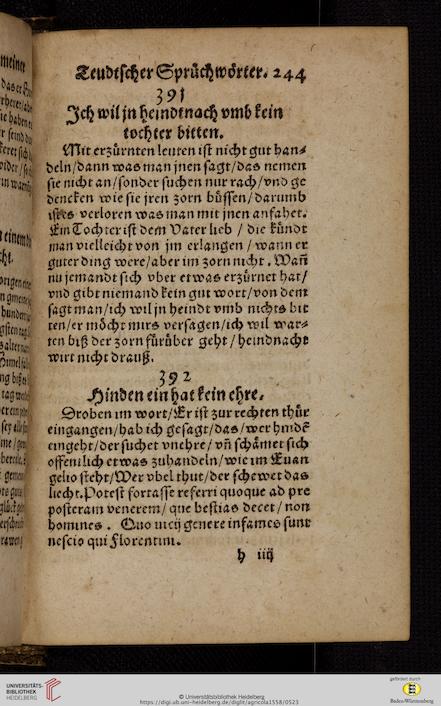 Teudtscher Sprüchwörter. 244
391
Ich wil jn heindtnach vmb kein
tochter bitten.
Mit erzürnten leuten ist nicht gut han=
deln/dann was man jnen sagt/das nemen
sie nicht an/sonder suchen nur rach/vnd ge
dencken wie sie jren zorn büssen/darumb
ists verloren was man mit jnen anfahet.
Ein Tochter ist dem Vater lieb / die kündt
man vielleicht von jm erlangen / wann er
guter ding were/aber im zorn nicht. Wañ
nu jemandt sich vber etwas erzürnet hat/
vnd gibt niemand kein gut wort/von dem
sagt man/ich wil jn heindt vmb nichts bit
ten/er möcht mirs versagen/ich wil war=
ten biß der zorn fürüber geht / heindnacht
wirt nicht drauß.
392
Hinden ein hat kein ehre.
Droben im wort/Er ist zur rechten thür
eingangen/hab ich gesagt/das/wer hindē
eingeht/der suchet vnehre/ vñ schämet sich
offentlich etwas zuhandeln/wie im Euan
gelio steht/Wer vbel thut/der schewet das
liecht. Potest fortasse referri quoque ad pre
posteram venerem/ que bestias decet/ non
homines. Quo uicij genere infames sunt
nescio qui Florentini.
h iij
UNIVERSITÄTS-
BIBLIOTHEK
HEIDELBERG
© Universitätsbibliothek Heidelberg
https://digi.ub.uni-heidelberg.de/diglit/agricola1558/0523
gefördert durch
Baden-Württemberg